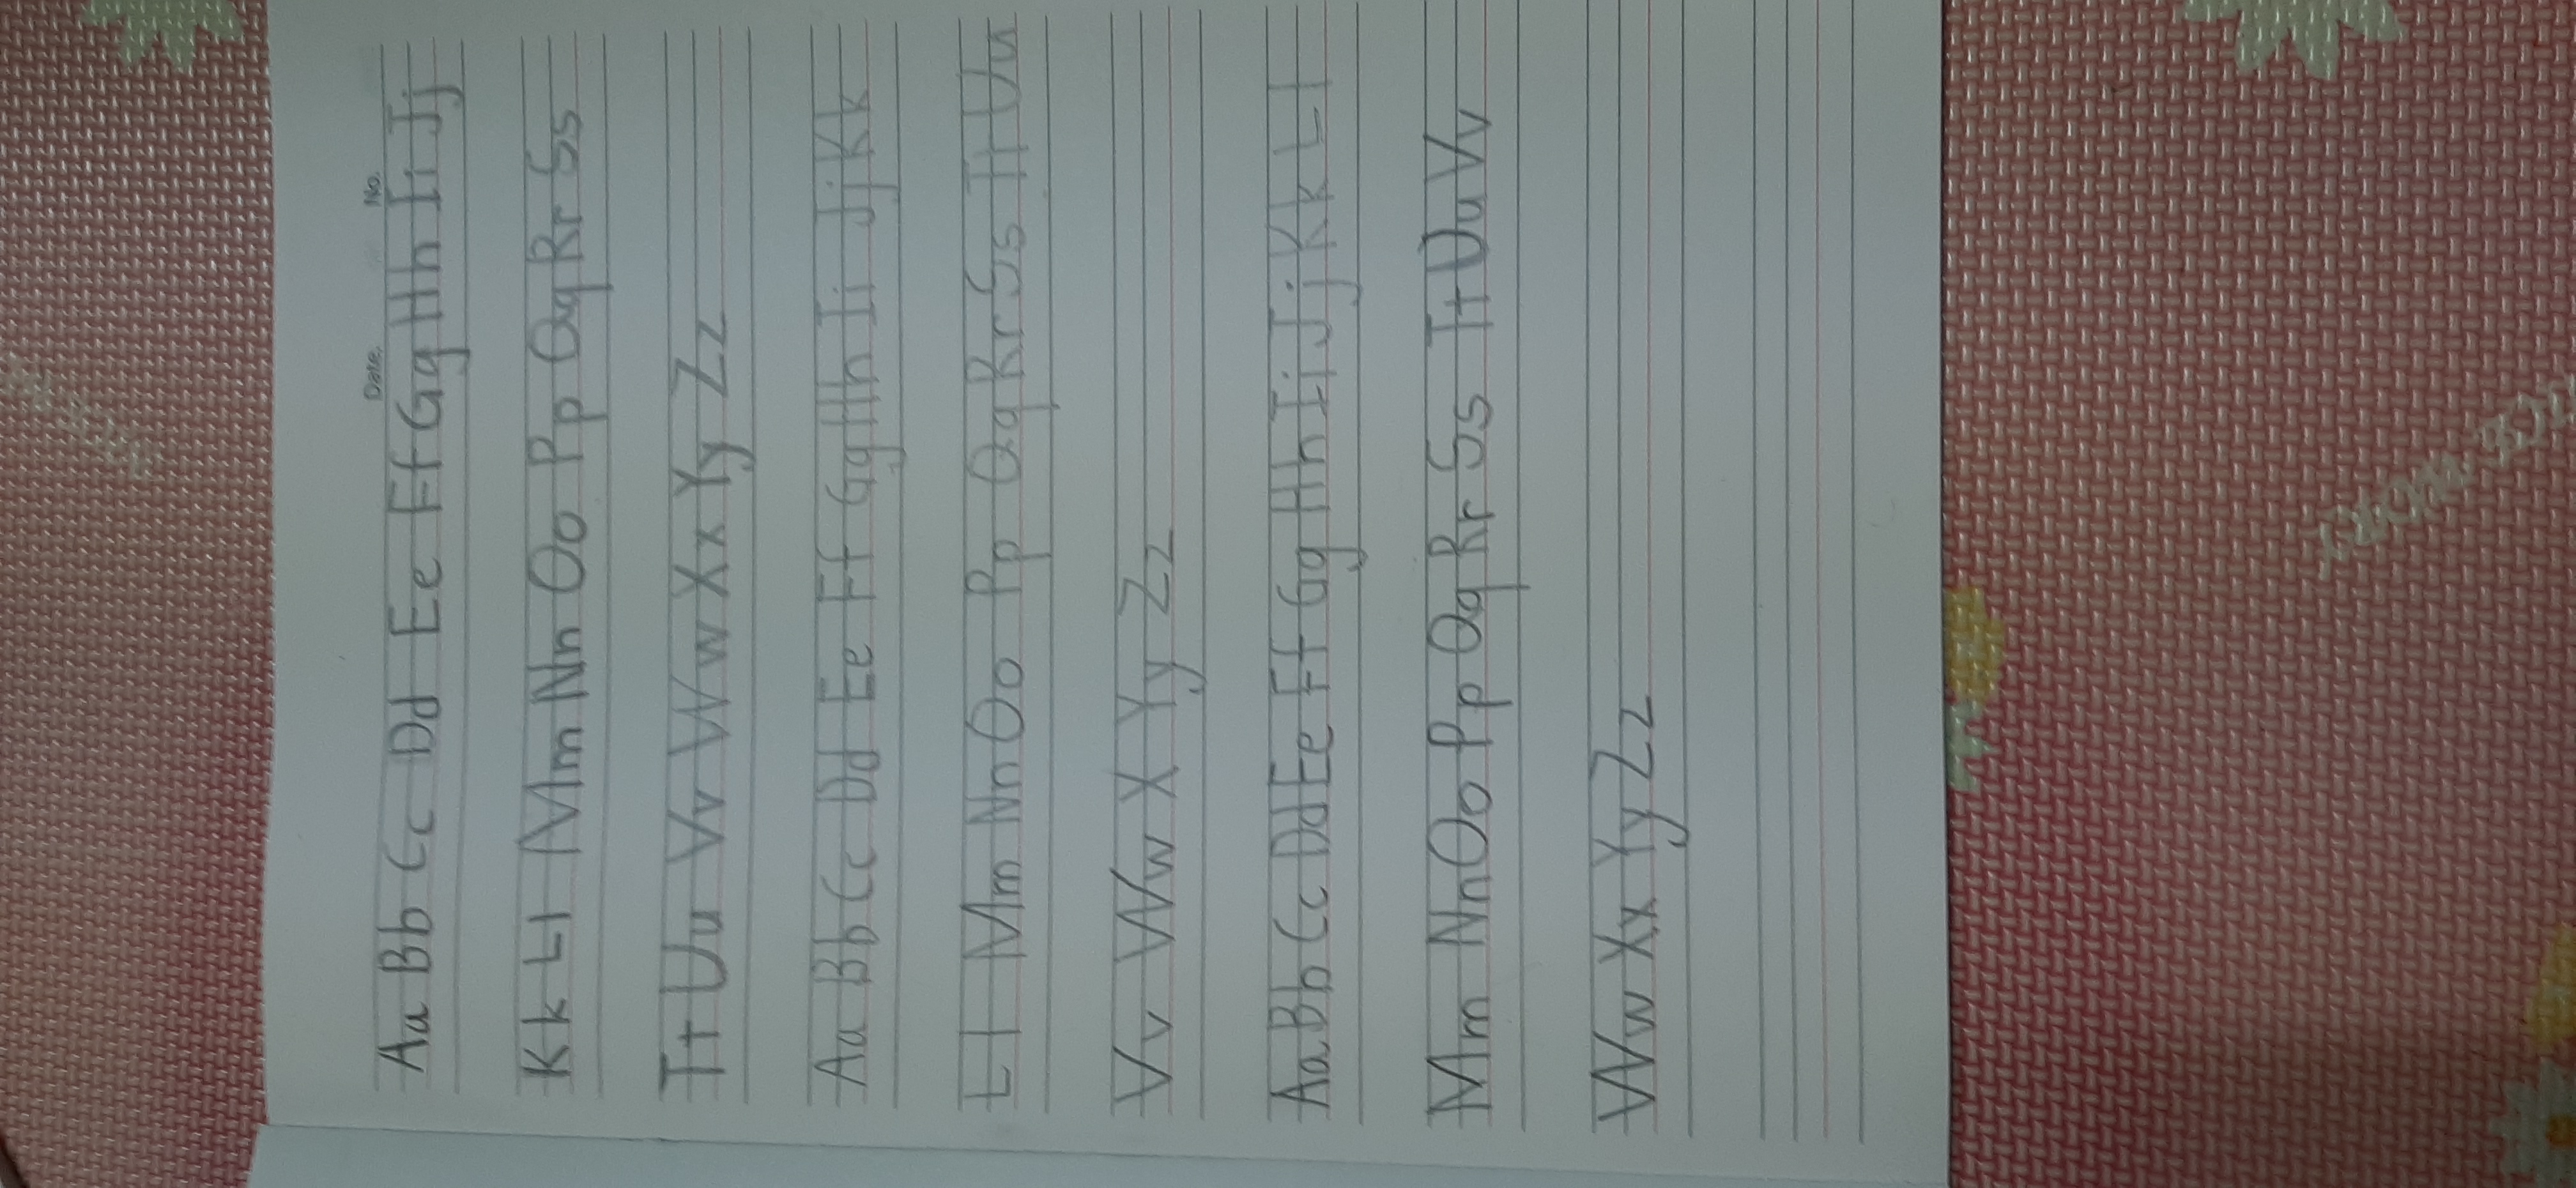 Date. No.
Aa Bb Cc Dd Ee Ff Gg Hh Ii Jj
Kk Ll Mm Nn Oo Pp Qq Rr Ss
Tt Uu Vv Ww Xx Yy Zz
Aa Bb Cc Dd Ee Ff Gg Hh Ii Jj Kk
Ll Mm Nn Oo Pp Qq Rr Ss Tt Uu
Vv Ww X Yy Zz
Aa Bb Cc Dd Ee Ff Gg Hh Ii Jj Kk Ll
Mm Nn Oo Pp Qq Rr Ss Tt Uu Vv
Ww Xx Yy Zz